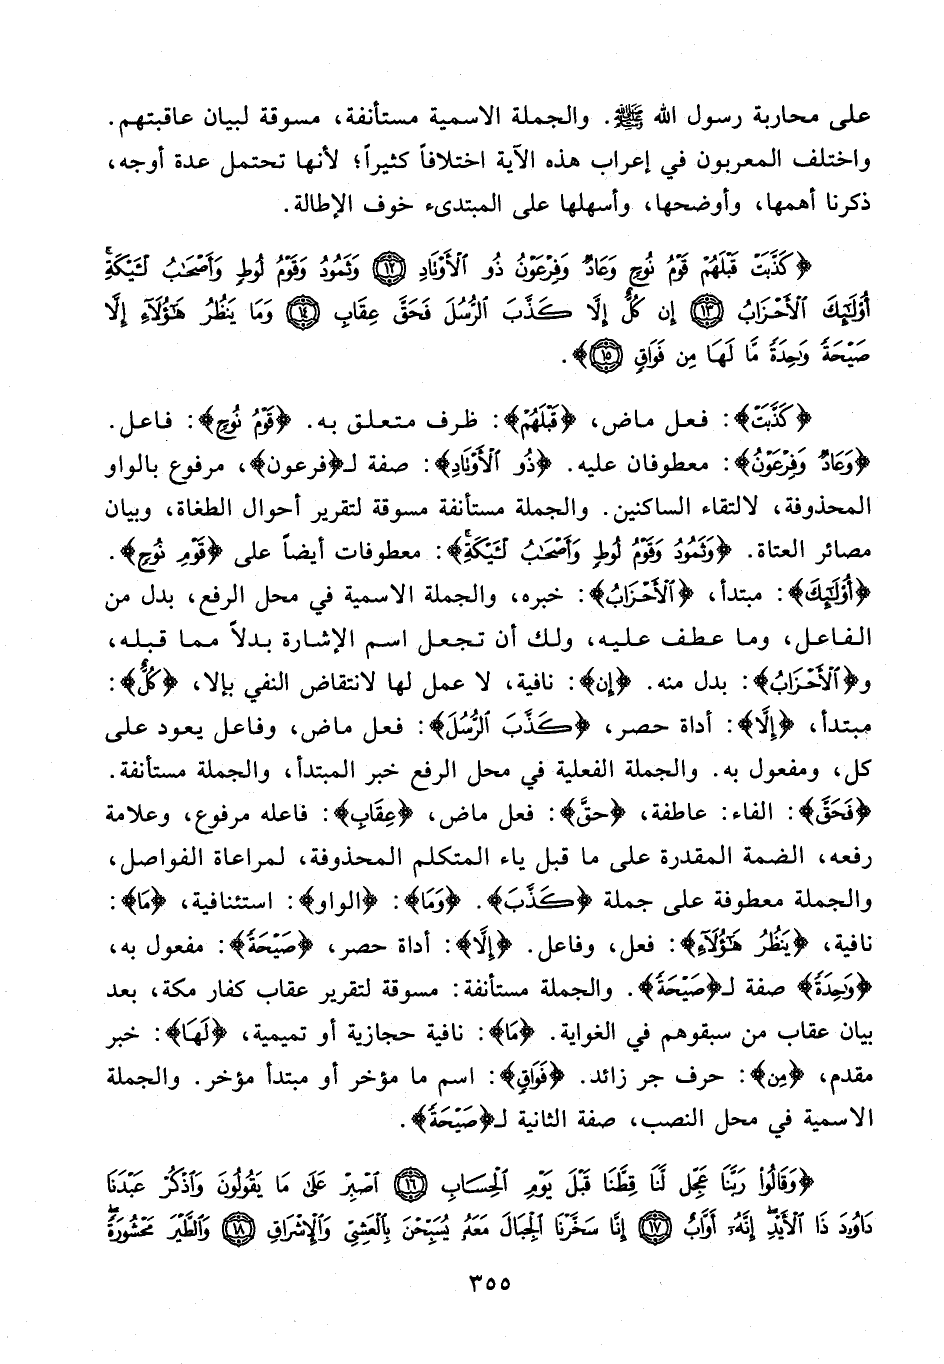 على محاربة رسول الله ﷺ. والجملة الاسمية مستأنفة، مسوقة لبيان عاقبتهم.
واختلف المعربون في إعراب هذه الآية اختلافاً كثيراً؛ لأنها تحتمل عدة أوجه،
ذكرنا أهمها، وأوضحها، وأسهلها على المبتدىء خوف الإطالة.
﴿كَذَّبَتْ قَبْلَهُمْ قَوْمُ نُوحٍ وَعَادٌ وَفِرْعَوْنُ ذُو الْأَوْتَادِ ١٢ وَثَمُودُ وَقَوْمُ لُوطٍ وَأَصْحَابُ لْـَٔيْكَةِ
أُوْلَٰٓئِكَ الْأَحْزَابُ ١٣ إِن كُلٌّ إِلَّا كَذَّبَ الرُّسُلَ فَحَقَّ عِقَابِ ١٤ وَمَا يَنظُرُ هَٰٓؤُلَآءِ إِلَّا
صَيْحَةً وَٰحِدَةً مَّا لَهَا مِن فَوَاقٍ ١٥﴾.
﴿كَذَّبَتْ﴾: فعل ماض، ﴿قَبْلَهُمْ﴾: ظرف متعلق به. ﴿قَوْمُ نُوحٍ﴾: فاعل.
﴿وَعَادٌ وَفِرْعَوْنُ﴾: معطوفان عليه. ﴿ذُو الْأَوْتَادِ﴾: صفة لـ﴿فرعون﴾، مرفوع بالواو
المحذوفة، لالتقاء الساكنين. والجملة مستأنفة مسوقة لتقرير أحوال الطغاة، وبيان
مصائر العتاة. ﴿وَثَمُودُ وَقَوْمُ لُوطٍ وَأَصْحَابُ لْـَٔيْكَةِ﴾: معطوفات أيضاً على ﴿قَوْمِ نُوحٍ﴾.
﴿أُوْلَٰٓئِكَ﴾: مبتدأ، ﴿الْأَحْزَابُ﴾: خبره، والجملة الاسمية في محل الرفع، بدل من
الفاعل، وما عطف عليه، ولك أن تجعل اسم الإشارة بدلاً مما قبله،
و﴿الْأَحْزَابُ﴾: بدل منه. ﴿إِن﴾: نافية، لا عمل لها لانتقاض النفي بإلا، ﴿كُلٌّ﴾:
مبتدأ، ﴿إِلَّا﴾: أداة حصر، ﴿كَذَّبَ الرُّسُلَ﴾: فعل ماض، وفاعل يعود على
كل، ومفعول به. والجملة الفعلية في محل الرفع خبر المبتدأ، والجملة مستأنفة.
﴿فَحَقَّ﴾: الفاء: عاطفة، ﴿حقَّ﴾: فعل ماض، ﴿عِقَابِ﴾: فاعله مرفوع، وعلامة
رفعه، الضمة المقدرة على ما قبل ياء المتكلم المحذوفة، لمراعاة الفواصل،
والجملة معطوفة على جملة ﴿كَذَّبَ﴾. ﴿وَمَا﴾: ﴿الواو﴾: استئنافية، ﴿مَا﴾:
نافية، ﴿يَنظُرُ هَٰٓؤُلَآءِ﴾: فعل، وفاعل. ﴿إِلَّا﴾: أداة حصر، ﴿صَيْحَةً﴾: مفعول به،
﴿وَٰحِدَةً﴾ صفة لـ﴿صَيْحَةً﴾. والجملة مستأنفة: مسوقة لتقرير عقاب كفار مكة، بعد
بيان عقاب من سبقوهم في الغواية. ﴿مَا﴾: نافية حجازية أو تميمية، ﴿لَهَا﴾: خبر
مقدم، ﴿مِن﴾: حرف جر زائد. ﴿فَوَاقٍ﴾: اسم ما مؤخر أو مبتدأ مؤخر. والجملة
الاسمية في محل النصب، صفة الثانية لـ﴿صَيْحَةً﴾.
﴿وَقَالُوا رَبَّنَا عَجِّل لَّنَا قِطَّنَا قَبْلَ يَوْمِ الْحِسَابِ ١٦ اصْبِرْ عَلَىٰ مَا يَقُولُونَ وَاذْكُرْ عَبْدَنَا
دَاوُۥدَ ذَا الْأَيْدِ إِنَّهُۥٓ أَوَّابٌ ١٧ إِنَّا سَخَّرْنَا الْجِبَالَ مَعَهُۥ يُسَبِّحْنَ بِالْعَشِيِّ وَالْإِشْرَاقِ ١٨ وَالطَّيْرَ مَحْشُورَةً
٣٥٥